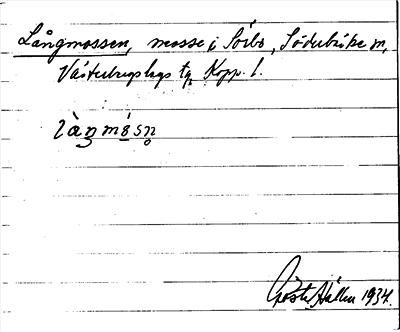 Långmossen, mosse i Sörbo, Söderbärke sn,
Västerbergslags tg Kopp. l.
làŋmósn̥
Gösta Hållen 1934.